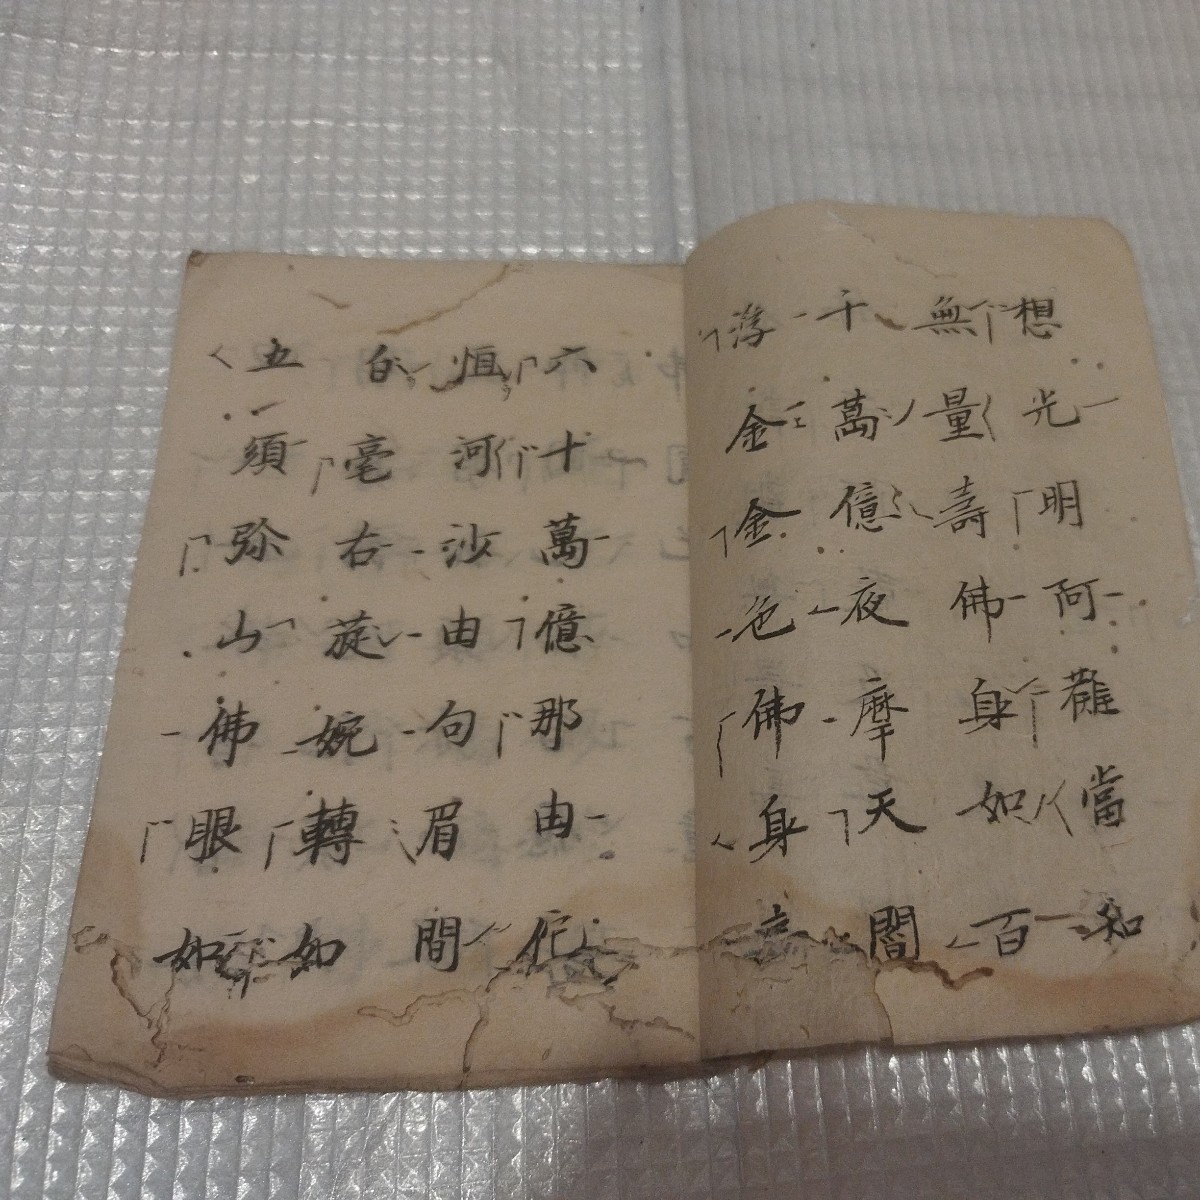 想光明阿難當知
無量壽佛身如百
千萬億夜摩天閻
浮金金色佛身高
六十萬億那由佗
恒河沙由句眉間
白毫右旋婉轉如
五須弥山佛眼如